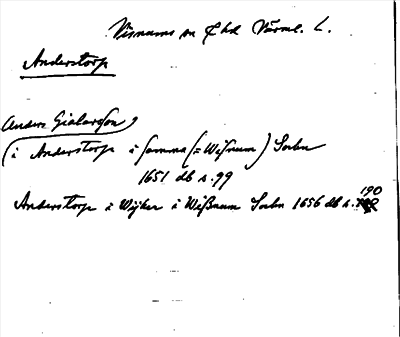 Visnums sn Ehd Värml. L.
Anderstorp
Anders Gialarsson
i Anderstorp i samma (= Wisnum) Sochn
1651 db s. 99
Anderstorp i Wijker i Wißnum Sochn 1656 db s. 190